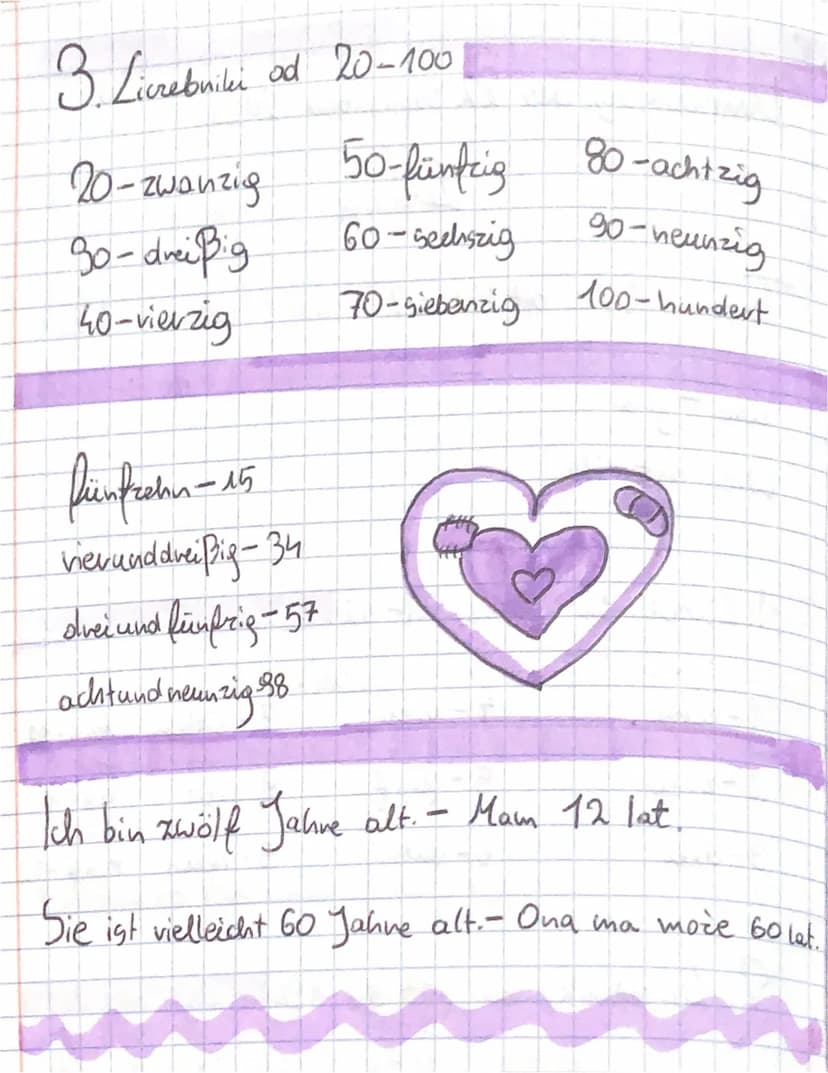 3. Liczebniki od 20-100
20-zwanzig 50-fünfzig 80-achtzig
30-dreißig 60-sechszig 90-neunzig
40-vierzig 70-siebenzig 100-hundert
fünfzehn-15
vierunddreißig-34
dreiundfünfzig-57
achtundneunzig-98
Ich bin zwölf Jahre alt. - Mam 12 lat.
Sie ist vielleicht 60 Jahre alt. - Ona ma może 60 lat.